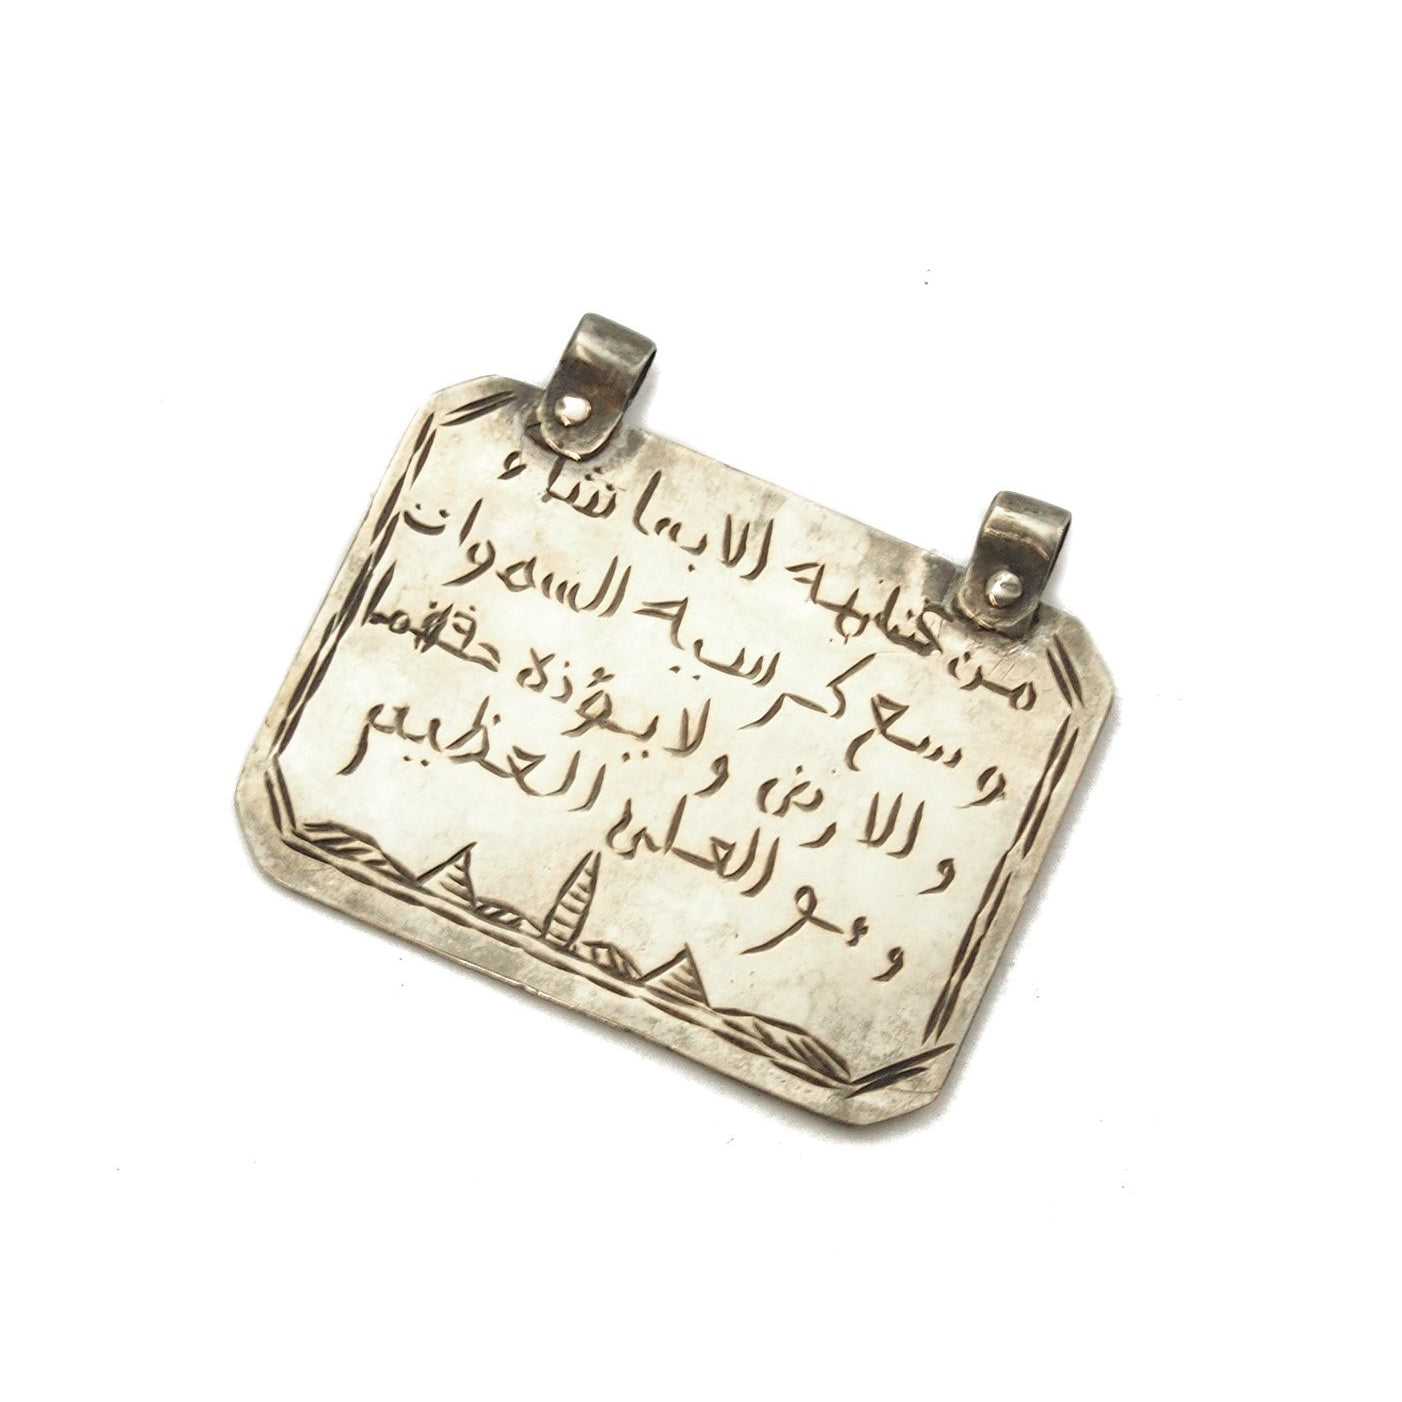 من علمه الا بما شاء
وسع كرسيه السموات
والارض ولا يؤده حفظهما
وهو العلى العظيم